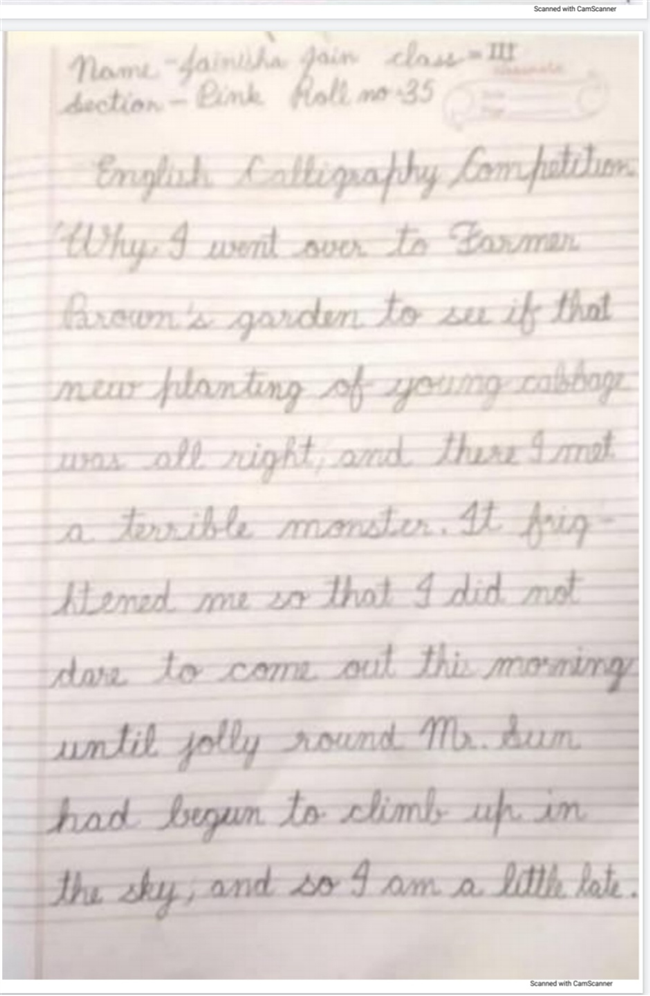 Scanned with CamScanner
Name - Jainisha Jain class = III
Section - Pink Roll no - 35
classmate
English Calligraphy Competition
"Why, I went over to Farmer
Brown's garden to see if that
new planting of young cabbage
was all right, and there I met
a terrible monster. It frig-
htened me so that I did not
dare to come out this morning
until jolly round Mr. Sun
had begun to climb up in
the sky, and so I am a little late.
Scanned with CamScanner